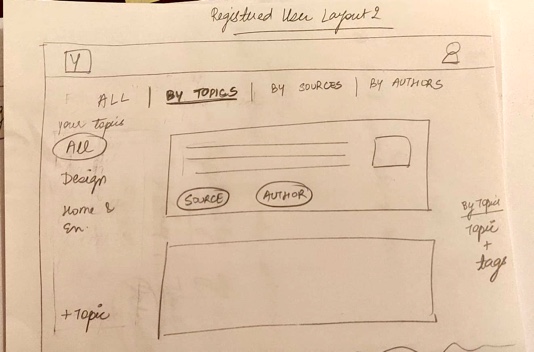 Registered User Layout 2
Y
ALL | BY TOPICS | BY SOURCES | BY AUTHORS
your topic
All
Design
Home &
En.
+ Topic
SOURCE AUTHOR
By Topic
Topic
+
tags